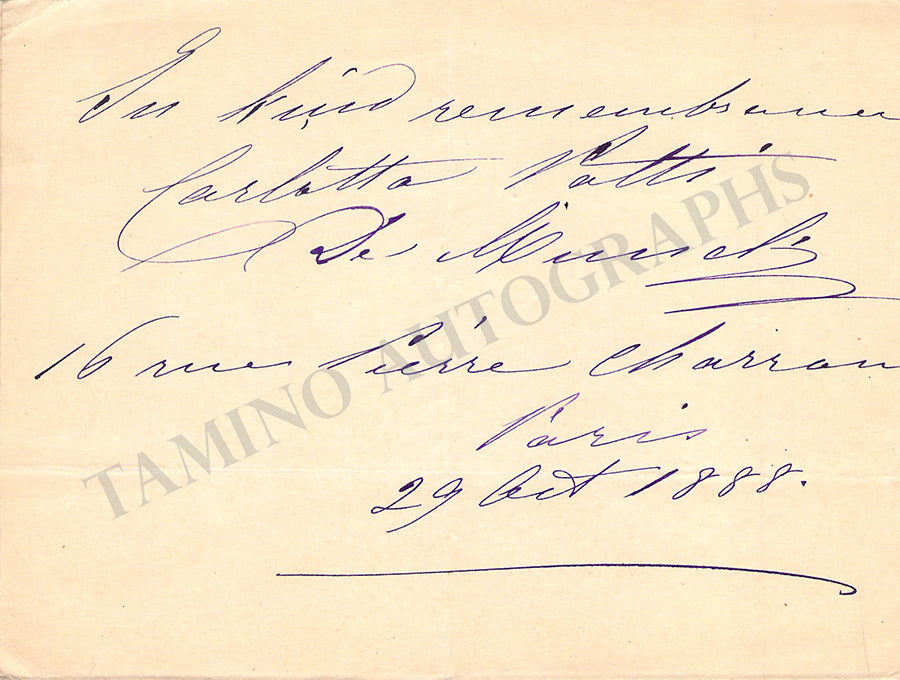 In kind remembrance
Carlotta Patti
De Munck
16 rue Pierre Charron
Paris
29 Oct 1888.
TAMINO AUTOGRAPHS